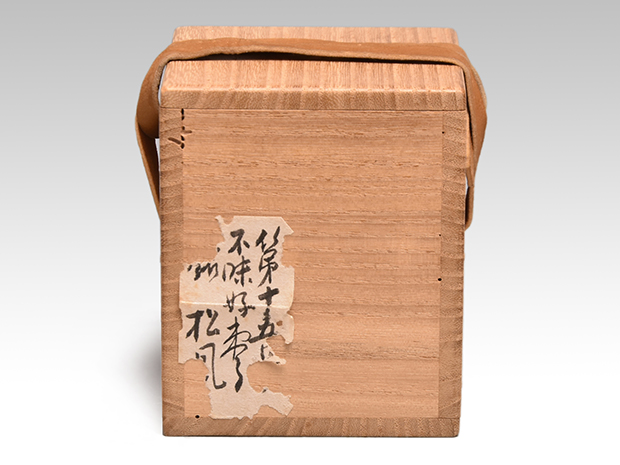 第十五
不昧好棗
松風